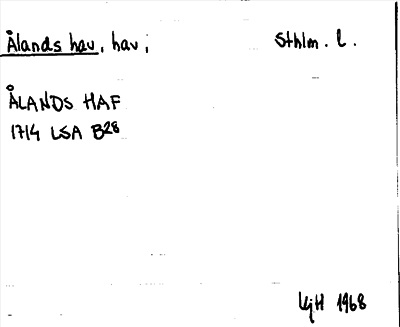 Ålands hav, hav; Sthlm. l.
ÅLANDS HAF
1714 LSA B28
LgH 1968